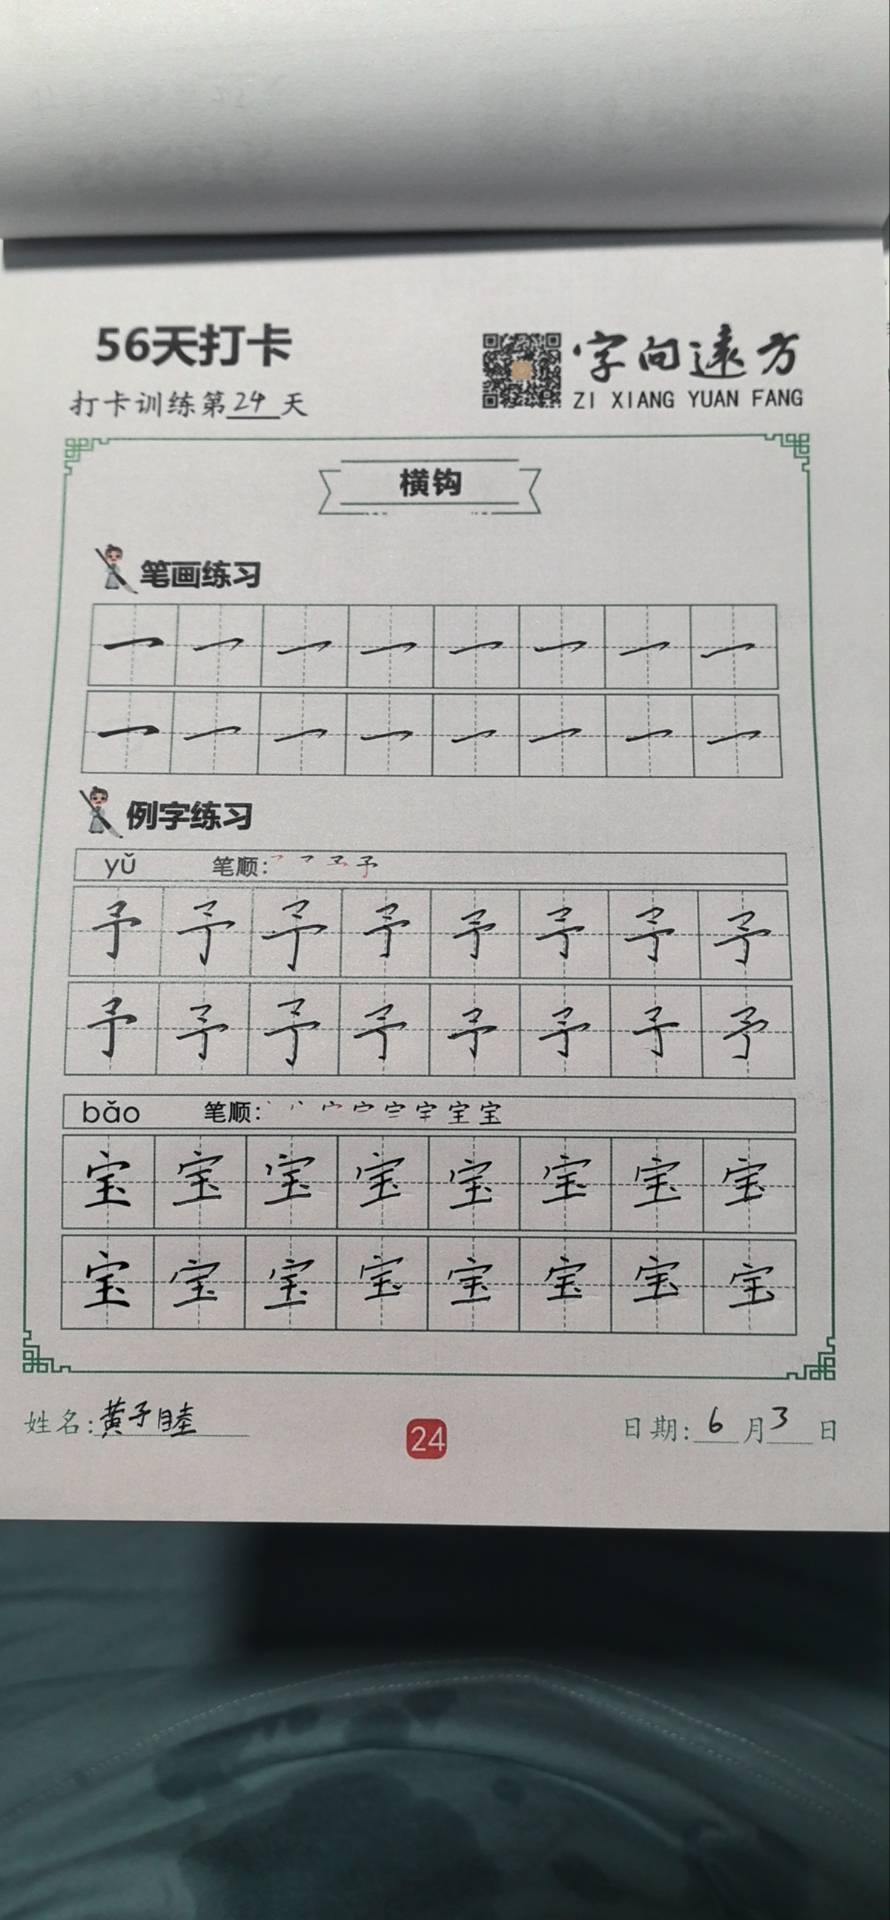 56天打卡
字向远方
打卡训练第24天
ZI XIANG YUAN FANG
横钩
笔画练习
㇖ ㇖ ㇖ ㇖ ㇖ ㇖ ㇖ ㇖
㇖ ㇖ ㇖ ㇖ ㇖ ㇖ ㇖ ㇖
例字练习
yǔ 笔顺:
予 予 予 予 予 予 予 予
予 予 予 予 予 予 予 予
bǎo 笔顺:
宝 宝 宝 宝 宝 宝 宝 宝
宝 宝 宝 宝 宝 宝 宝 宝
姓名:黄予睦
24
日期:6月3日